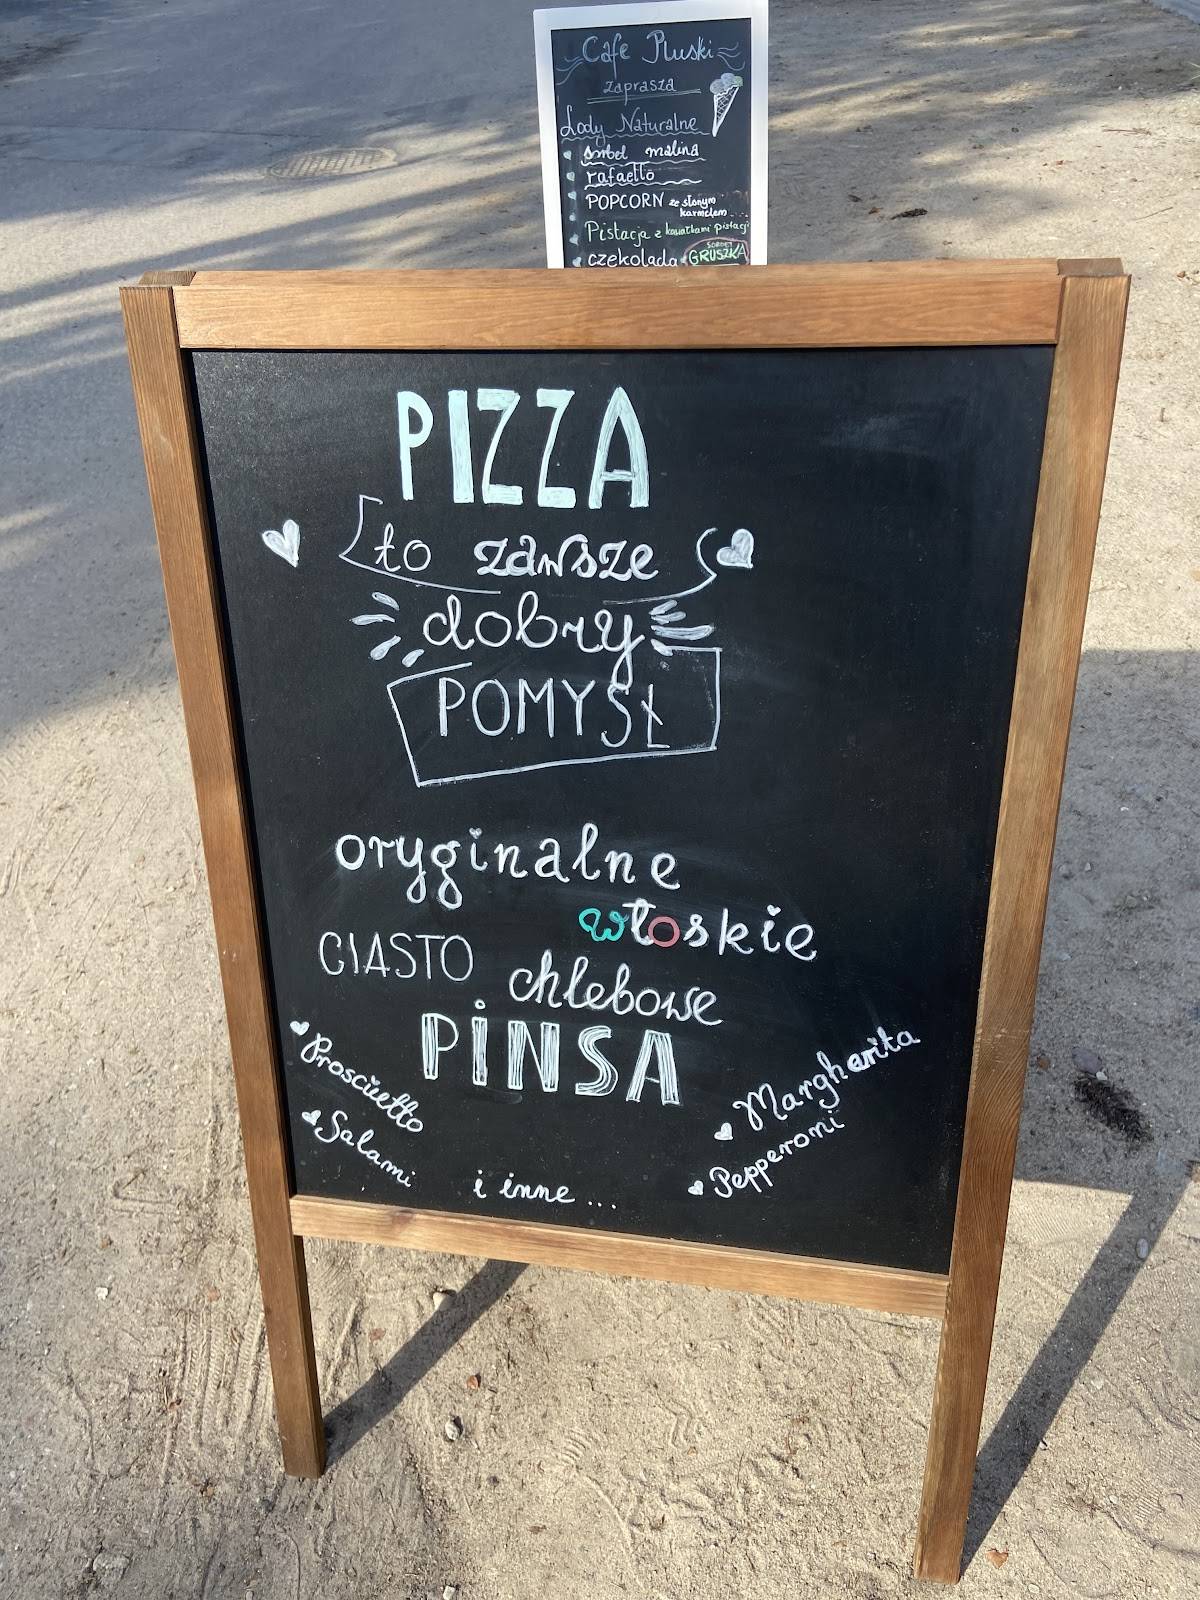 Cafe Pluski
zaprasza
Lody Naturalne
sorbet malina
rafaello
POPCORN ze słonym
karmelem
Pistacja z kawałkami pistacji
czekolada
SORBET
GRUSZKA
PIZZA
to zawsze
dobry
POMYSŁ
oryginalne
włoskie
CIASTO chlebowe
PiNSA
Prosciuetto
Salami
i inne...
Margherita
Pepperoni